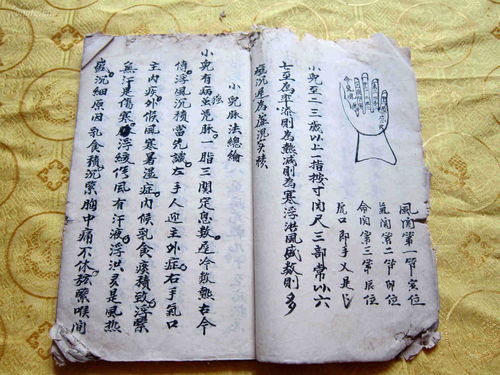 風関第一節寅位
氣関第二節卯位
命関第三節辰位
虎口即手乂是
小兒至二三歳以上一指按寸関尺三部常以六
七至為率添則為熱減則為寒浮浩風盛数則多
沉遲為虛沉实積
小兒脉法總
小兒有病脉一指三関定息数冷数熱古今
浮風沉積當先識左手人迎主外症右手氣口
主内疾外候風寒暑温症内候乳食痰積致浮緊
無汗是傷寒浮緩傷風有汗液浮洪多是風热
沉細原因乳食積沉緊胸中痛不休弦緊喉間